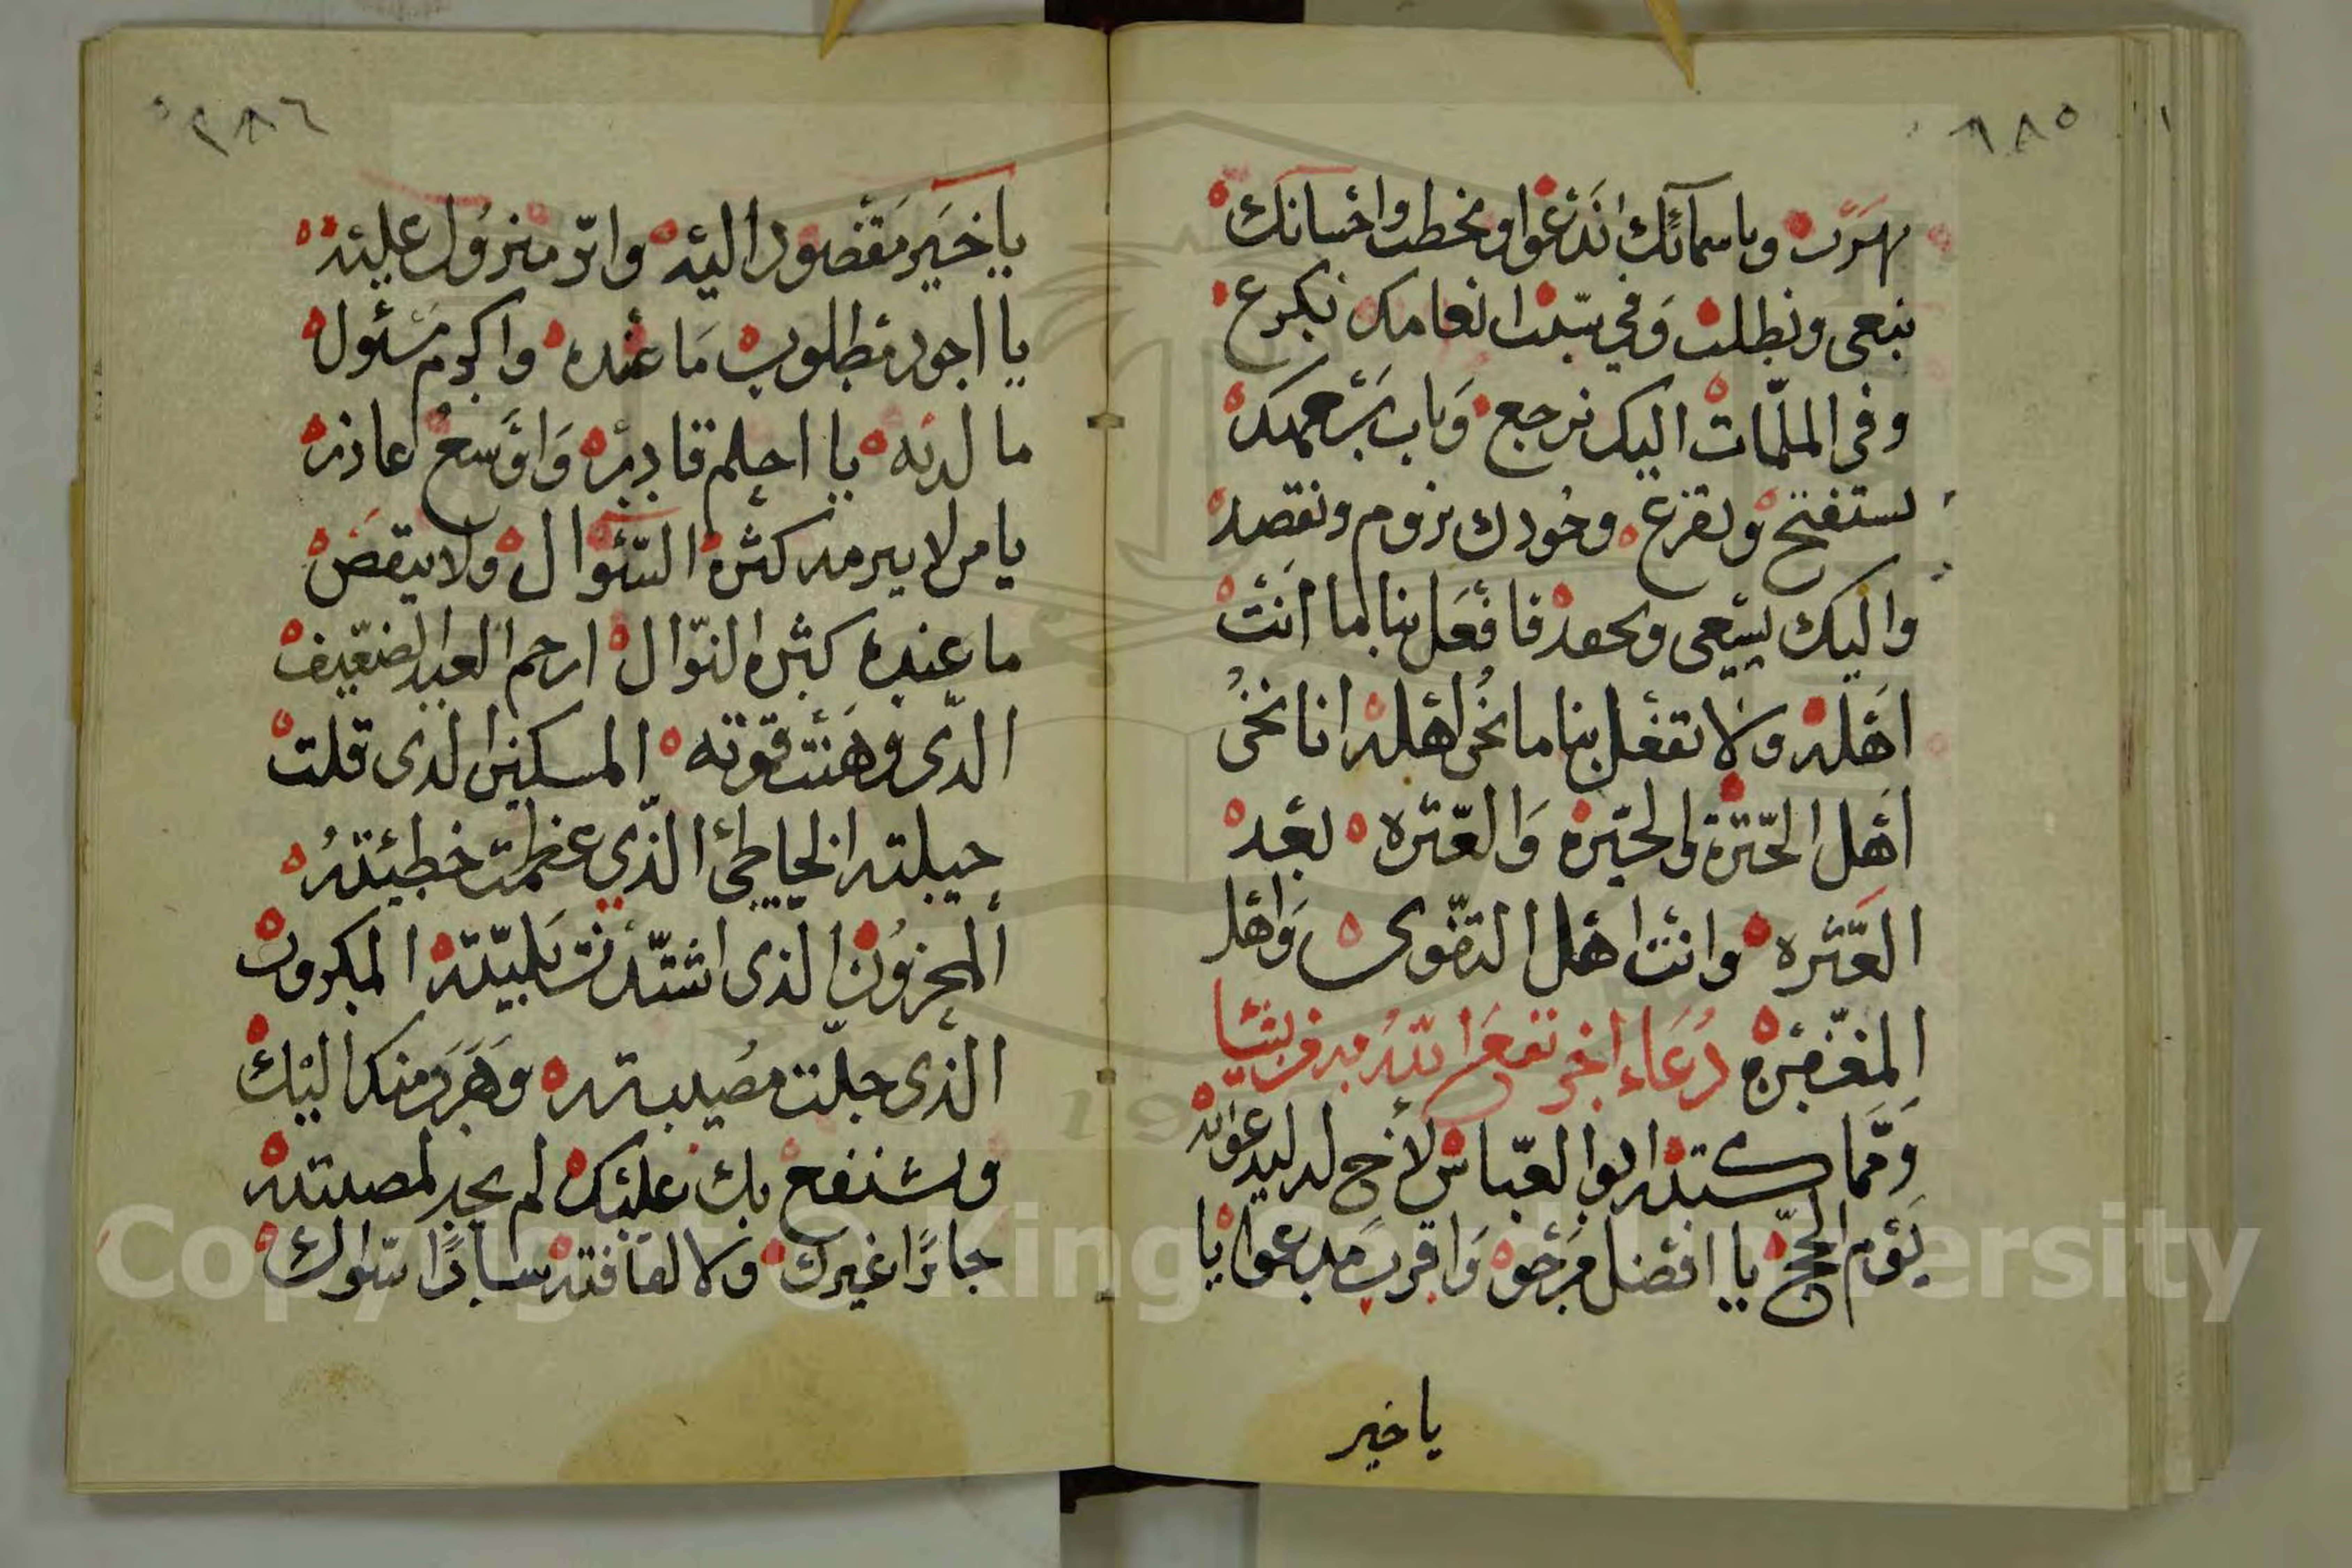 ٢٨٥
نهرب وباسمائك اندعوا ونخطب واحسانك
نبغى ونطلب وفي بيت انعامك نكرع
وفى الملمات اليك نرجع وباب
نستفتح ونقرع وجودك نروم ونقصد
واليك نسعى ونحفد فافعل بنا ما انت
اهله ولا تفعل بنا ما نحن اهله انا نحن
اهل الحيرة والعثره بعد
العثره وانت اهل التقوى واهل
المغفره دعاء اخر نفع الله به
ومما كتبه ابوا العباس لاخ له ليدعوا به
يوم الحج يا افضل مرجو واقرب مدعوا يا
يا خير
٢٨٦
يا خير مقصود اليه وابر منزول عليه
يا اجود مطلوب ما عنده واكرم مسئول
ما لديه يا احلم قادر واوسع عاذر
يا من لا يبرمه كثرة السئوال ولا ينقص
ما عنده كثره النوال ارحم العبد الضعيف
الذى وهنت قوته المسكين الذى قلت
حيلته الخاطئ الذي عظمت خطيئته
المحزون الذى اشتدت بليته المكروب
الذى جلت مصيبته وهرب منك اليك
وتشفع بك عليك لم يجد لمصيبته
جابرا غيرك ولا لفاقته سادا سواك
Copyright © King Saud University
1957